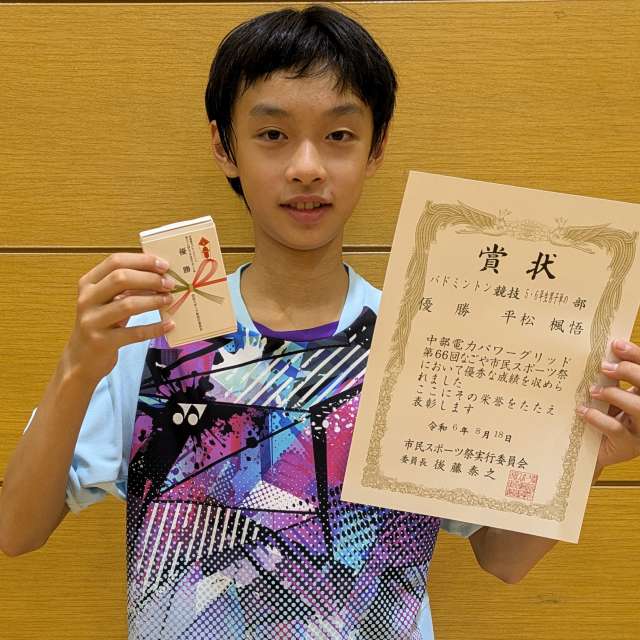 優勝
賞状
バドミントン競技 5・6年生男子単の 部
優勝 平松 楓悟
中部電力パワーグリッド
第66回なごや市民スポーツ祭
において優秀な成績を収めら
れました
ここにその栄誉をたたえ
表彰します
令和 6 年 8 月 18 日
市民スポーツ祭実行委員会
委員長 後藤泰之